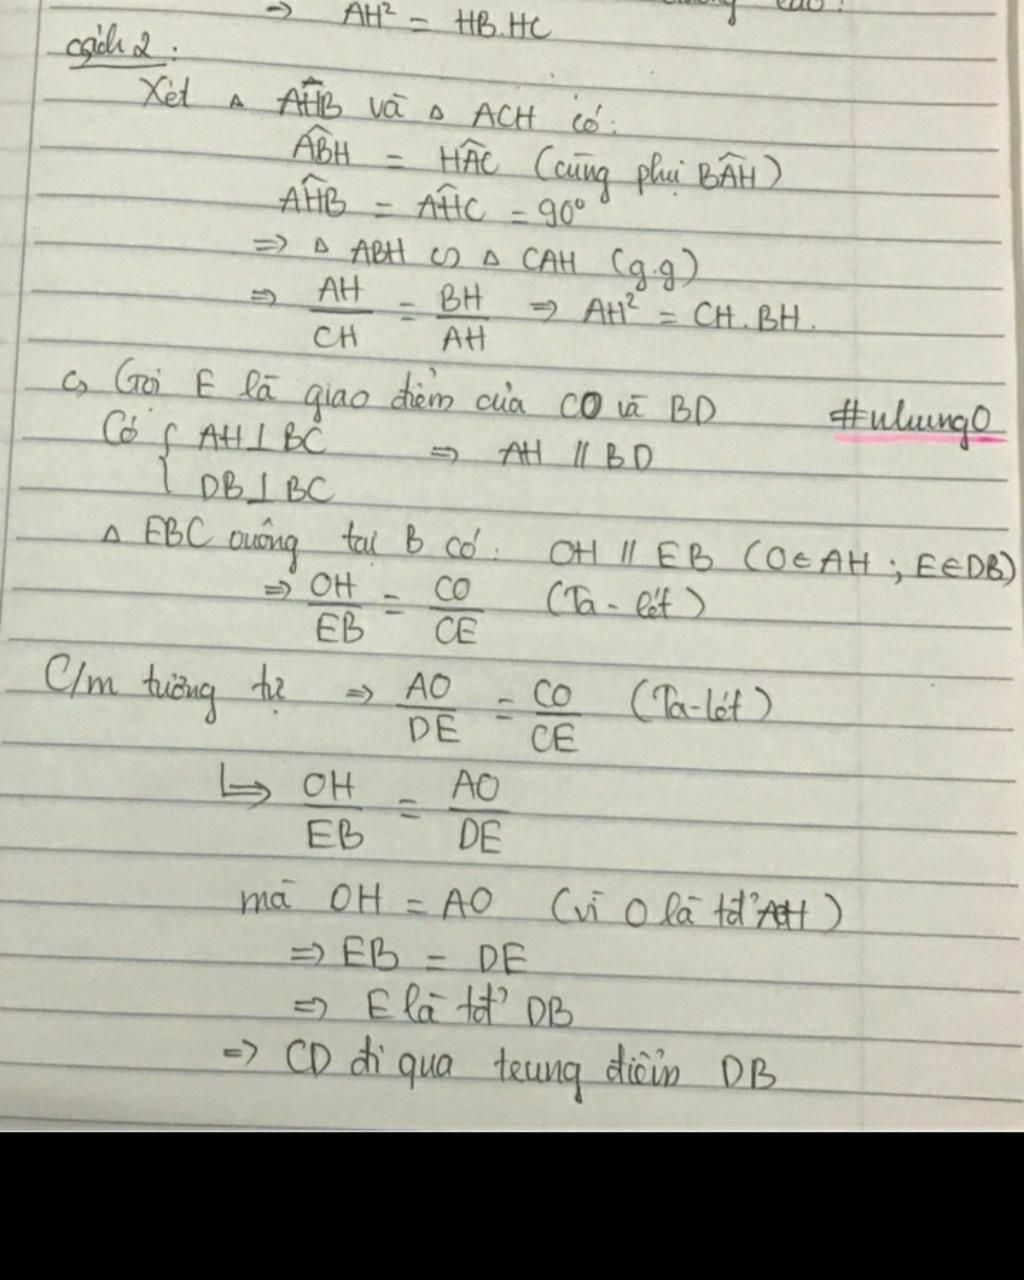 ⇒ AH² = HB.HC
cách 2:
Xét △ AHB và △ ACH có:
ABH = HAC (cùng phụ BAH)
AHB = AHC = 90°
⇒ △ ABH ∽ △ CAH (g.g)
⇒ AH/CH = BH/AH ⇒ AH² = CH.BH.
c, Gọi E là giao điểm của CO và BD #nhung0
Có { AH⊥BC ⇒ AH // BD
DB⊥BC
△ EBC vuông tại B có: OH // EB (O∈AH; E∈DB)
⇒ OH/EB = CO/CE (Ta-lét)
C/m tương tự ⇒ AO/DE = CO/CE (Ta-lét)
↳ OH/EB = AO/DE
mà OH = AO (vì O là tđ' AH)
⇒ EB = DE
⇒ E là tđ' DB
⇒ CD đi qua trung điểm DB